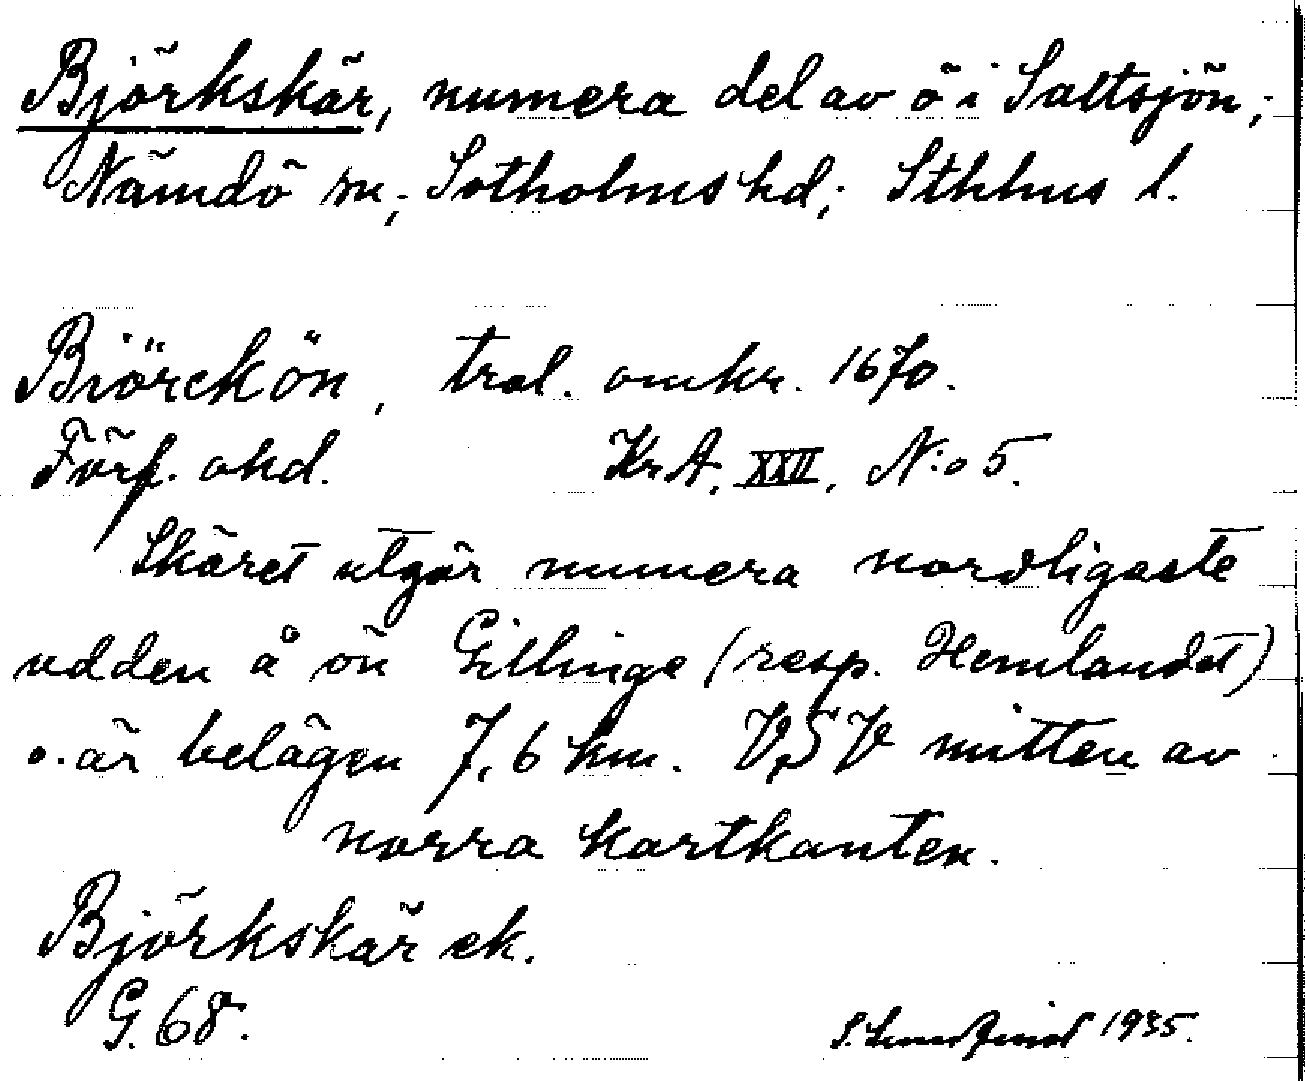 Björkskär, numera del av ö i Saltsjön,
Nämdö sn; Sotholms hd; Sthlms l.
Biörckön, trol. omkr. 1670.
Förf. okd. KrA, XXII, N:o 5.
Skäret utgör numera nordligaste
udden å ön Gillinge (resp. Hemlandet)
o. är belägen 7,6 km. VSV mitten av
norra kartkanten.
Björkskär ek.
G. 68.
S. 1935.